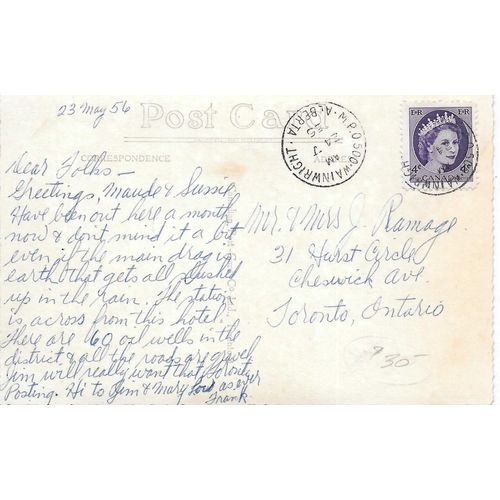 23 May 56
Post Card
CORRESPONDENCE
ADDRESS
M.P.O 500 WAINWRIGHT · ALBERTA ·
E II R E II R
CANADA
4
WAINWRIGHT
Dear Folks—
Greetings, Maude & Sussie
Have been out here a month
now & don't mind it a bit
even if the main drag is
earth that gets all slushed
up in the rain. The station
is across from this hotel.
There are 60 oil wells in the
district & all the roads are gravel
Jim will really want that
Posting. Hi to Jim & Mary Lou as ever
Frank
Mr. & Mrs J. Ramage
31 Hurst Circle
Cheswick Ave.
Toronto, Ontario